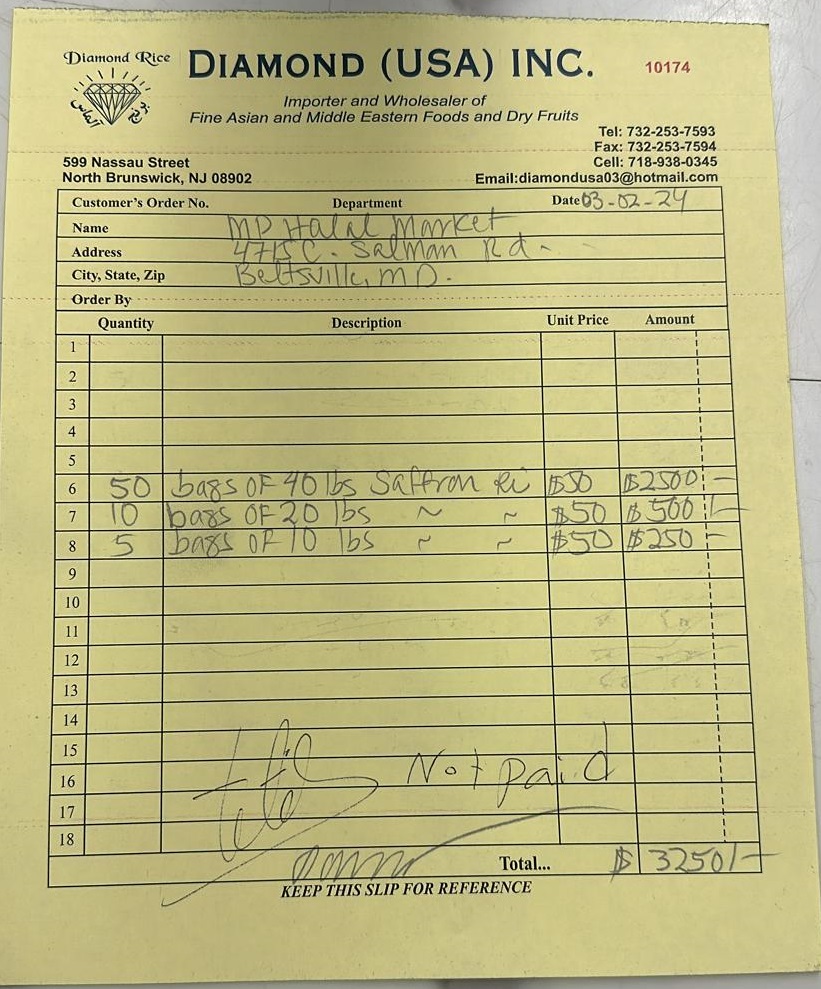 Diamond Rice
DIAMOND (USA) INC.
10174
Importer and Wholesaler of
Fine Asian and Middle Eastern Foods and Dry Fruits
Tel: 732-253-7593
Fax: 732-253-7594
599 Nassau Street
Cell: 718-938-0345
North Brunswick, NJ 08902
Email:diamondusa03@hotmail.com
Customer's Order No. Department Date 03-02-24
Name MD Halal Market
Address 4715 C. Salman Rd.
City, State, Zip Beltsville, MD.
Order By
Quantity Description Unit Price Amount
1
2
3
4
5
6 50 bags OF 40 lbs Saffron Ri $50 $2500 —
7 10 bags OF 20 lbs ~ ~ $50 $500 /—
8 5 bags OF 10 lbs ~ ~ $50 $250 —
9
10
11
12
13
14
15
16 Not paid
17
18
Total... $ 3250/—
KEEP THIS SLIP FOR REFERENCE